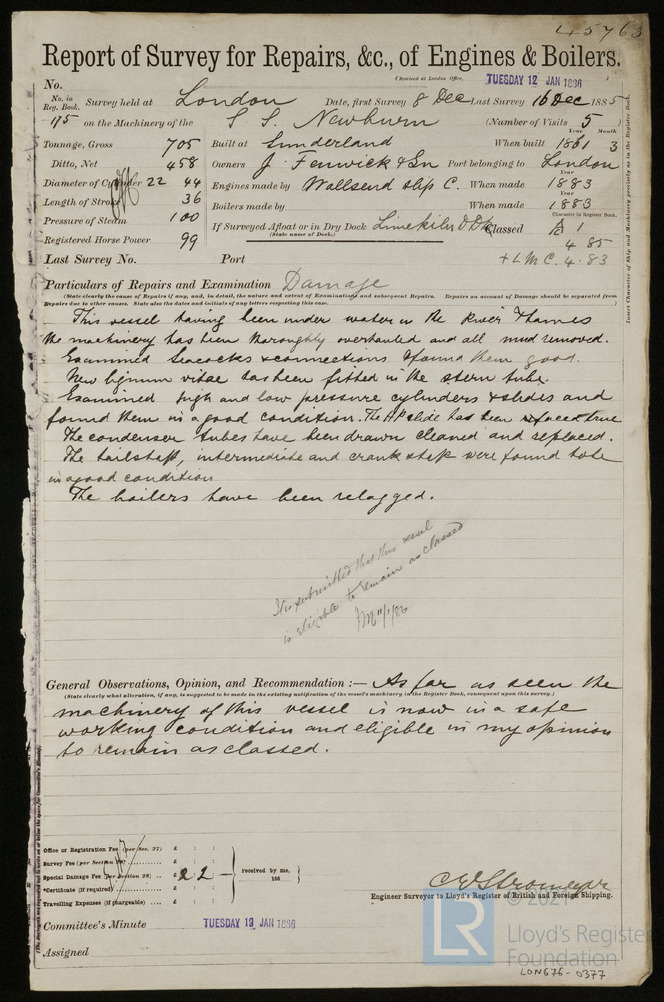 45763
Report of Survey for Repairs, &c., of Engines & Boilers.
(Received at London Office, TUESDAY 12 JAN 1886 )
No.
No. in Reg. Book. Survey held at London Date, first Survey 8 Dec Last Survey 16 Dec 1885
175 on the Machinery of the S S. Newburn (Number of Visits 5 )
Tonnage, Gross 705 Built at Sunderland When built Year 1861 Month 3
Ditto, Net 458 Owners J. Fenwick & Sn Port belonging to London
Diameter of Cylinder 22 44 Engines made by Wallsend Slip C. When made Year 1883
Length of Stroke 36 Boilers made by When made Year 1883
Pressure of Steam 100 If Surveyed Afloat or in Dry Dock Limekiln D Dk Classed Character in Register Book. A 1
(State name of Dock.)
Registered Horse Power 99 4 85
Last Survey No. Port + L M C. 4. 83
Particulars of Repairs and Examination Damage
(State clearly the cause of Repairs if any, and, in detail, the nature and extent of Examinations and subsequent Repairs. Repairs on account of Damage should be separated from
Repairs due to other causes. State also the dates and initials of any letters respecting this case.)
This vessel having been under water in the River Thames
the machinery has been thoroughly overhauled and all mud removed.
Examined Seacocks & connections & found them good.
New lignum vitae has been fitted in the stern tube.
Examined high and low pressure cylinders & slides and
found them in a good condition. The H.P. slide has been refaced true
The condenser tubes have been drawn cleaned and replaced.
The tailshaft, intermediate and crank shaft were found to be
in a good condition
The boilers have been relagged.
It is submitted that this vessel
is eligible to remain as classed
11/1/86
General Observations, Opinion, and Recommendation :— As far as seen the
(State clearly what alteration, if any, is suggested to be made in the existing notification of the vessel's machinery in the Register Book, consequent upon this survey.)
machinery of this vessel is now in a safe
working condition and eligible in my opinion
to remain as classed.
Office or Registration Fee (per Sec. 27) £ : :
Survey Fee (per Section 28) £ : :
Special Damage Fee (per Section 28) £ 2 2 – received by me,
*Certificate (if required) £ : : 188
Travelling Expenses (if chargeable) £ : :
C E Stromeyer
Engineer Surveyor to Lloyd's Register of British and Foreign Shipping.
Committee's Minute TUESDAY 19 JAN 1886
Assigned
© 2021
LR Lloyd's Register
Foundation
LON676-0377